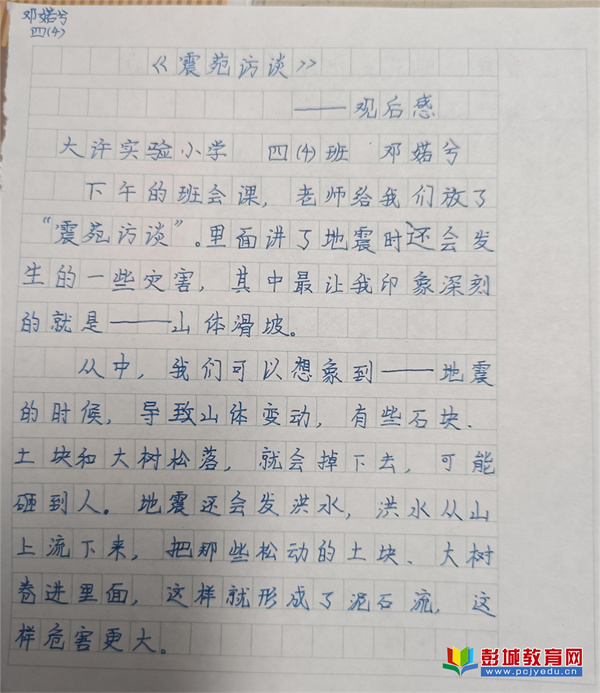 邓婼兮
四(4)
《震苑访谈》
——观后感
大许实验小学 四(4)班 邓婼兮
下午的班会课，老师给我们放了
“震苑访谈”。里面讲了地震时还会发
生的一些灾害，其中最让我印象深刻
的就是——山体滑坡。
从中，我们可以想象到——地震
的时候，导致山体变动，有些石块、
土块和大树松落，就会掉下去，可能
砸到人。地震还会发洪水，洪水从山
上流下来，把那些松动的土块、大树
卷进里面，这样就形成了泥石流，这
样危害更大。
彭城教育网
www.pcjyedu.cn